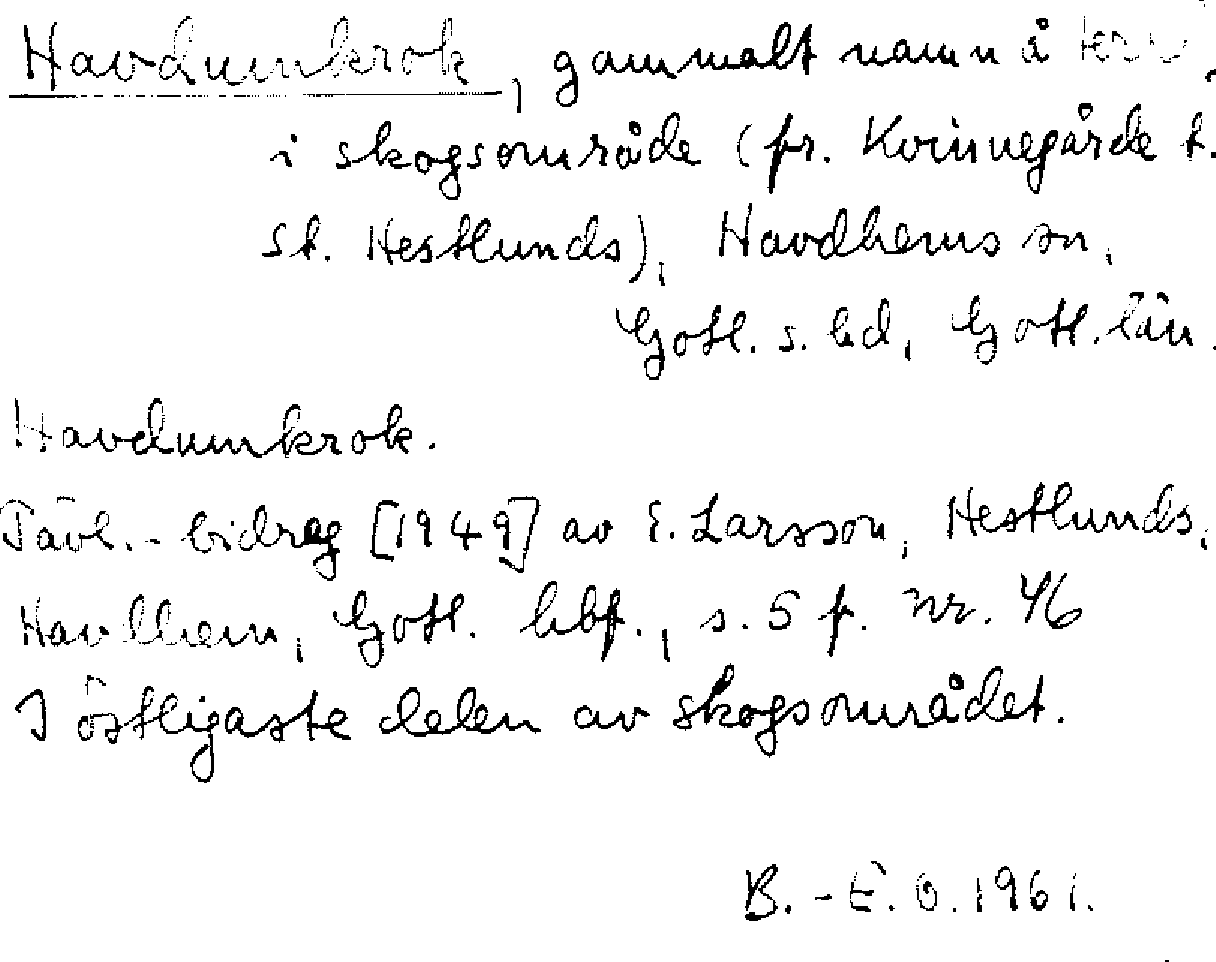 Havdumkrok, gammalt namn å terr.
i skogsområde (fr. Kvinnegårde t.
St. Hestlunds), Havdhems sn,
Gotl. s. hd, Gotl. län.
Havdumkrok.
Tävl.-bidrag [1949] av E. Larsson, Hestlunds,
Havdhem, Gotl. hbf., s. 5 f. nr. 46
I östligaste delen av skogsområdet.
B.-E. O. 1961.